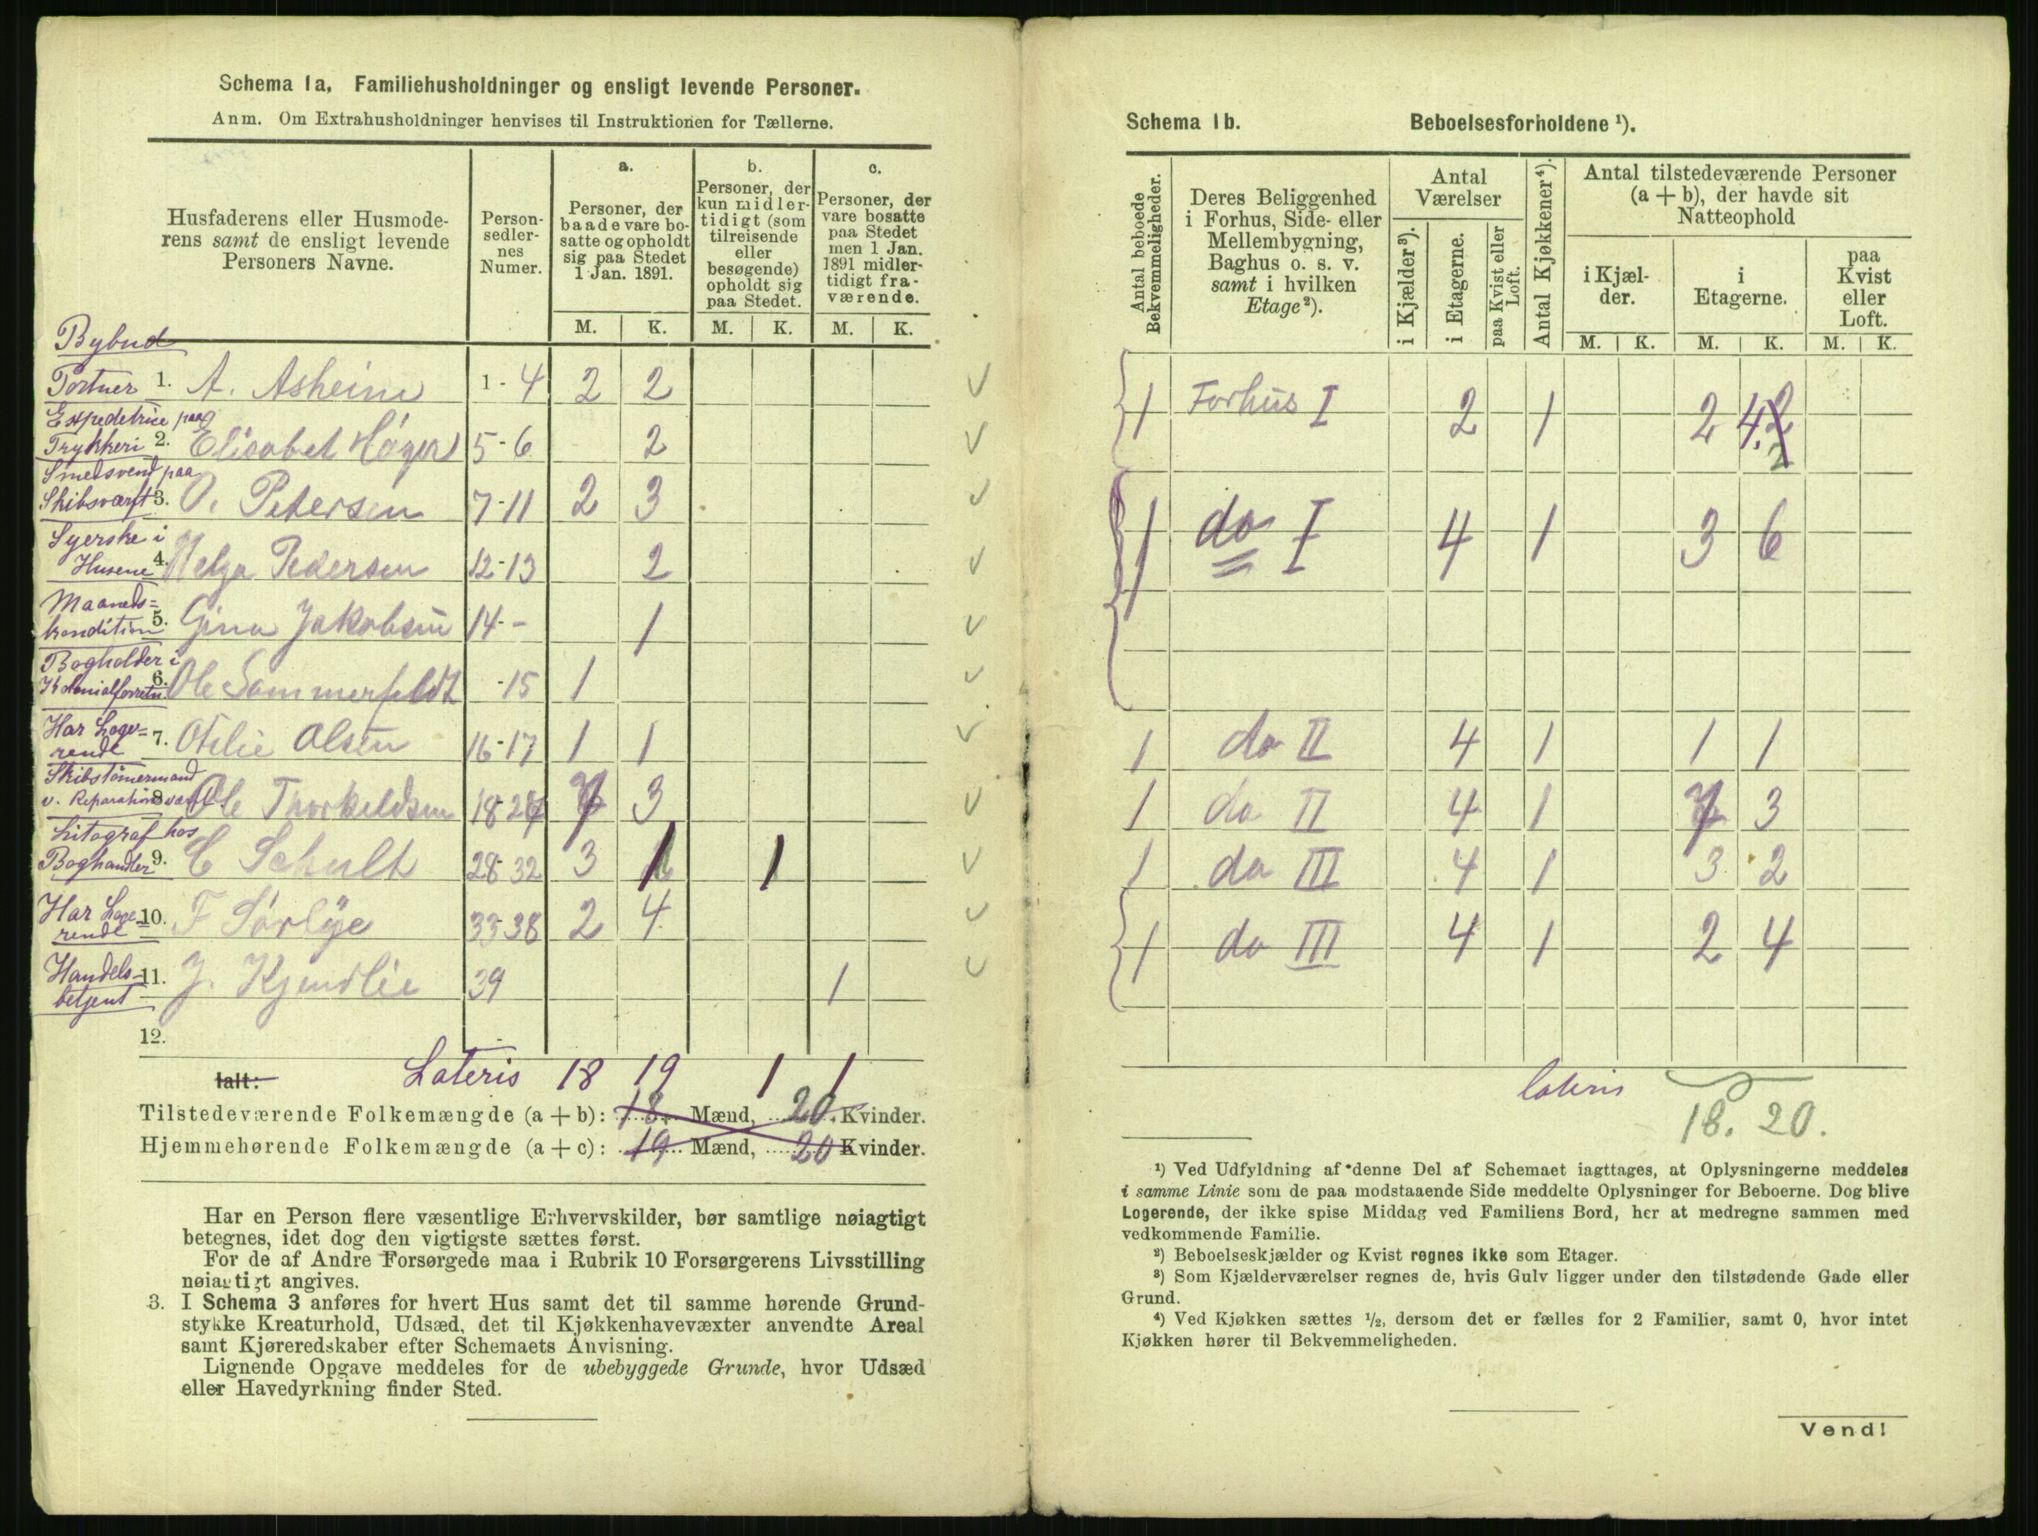 Schema 1a. Familiehusholdninger og ensligt levende Personer.
Anm. Om Extrahusholdninger henvises til Instruktionen for Tællerne.
Husfaderens eller Husmode-
rens samt de ensligt levende
Personers Navne.
Person-
sedler-
nes
Numer.
a.
Personer, der
baade vare bo-
satte og opholdt
sig paa Stedet
1 Jan. 1891.
b.
Personer, der
kun midler-
tidigt (som
tilreisende
eller
besøgende)
opholdt sig
paa Stedet.
c.
Personer, der
vare bosatte
paa Stedet
men 1 Jan.
1891 midler-
tidigt fra-
værende.
M. K. M. K. M. K.
Bybud
Portner 1. A. Asheim 1-4 2 2
Expeditrice paa
Trykkeri 2. Elisabet Høyer 5-6 2
Smedsvend paa
Skibsværft 3. O. Petersen 7-11 2 3
Syerske i
Husene 4. Helga Pedersen 12-13 2
Maaneds=
kondition 5. Gina Jakobsen 14- - 1
Bogholder i
Kolonialforretn. 6. Ole Sommerfeldt -15 1
Har Loge=
rende 7. Otilie Olsen 16-17 1 1
Skibstömermand
v. Reparations værft 8. Ole Thorkeldsen 18-27 7 3
Litograf hos
Boghandler 9. C Schult 28-32 3 1 1
Har Loge=
rende 10. F Sörlye 33-38 2 4
Handels-
betjent 11. J. Kjendlie 39 1
12.
Ialt: Lateris 18 19 1 1
Tilstedeværende Folkemængde (a + b): 18 Mænd, 20 Kvinder.
Hjemmehørende Folkemængde (a + c): 19 Mænd, 20 Kvinder.
Har en Person flere væsentlige Erhvervskilder, bør samtlige nøiagtigt
betegnes, idet dog den vigtigste sættes først.
For de af Andre Forsørgede maa i Rubrik 10 Forsørgerens Livsstilling
nøiagtigt angives.
3. I Schema 3 anføres for hvert Hus samt det til samme hørende Grund-
stykke Kreaturhold, Udsæd, det til Kjøkkenhavevæxter anvendte Areal
samt Kjøreredskaber efter Schemaets Anvisning.
Lignende Opgave meddeles for de ubebyggede Grunde, hvor Udsæd
eller Havedyrkning finder Sted.
Schema 1b. Beboelsesforholdene ¹).
Antal beboede
Bekvemmeligheder.
Deres Beliggenhed
i Forhus, Side- eller
Mellembygning,
Baghus o. s. v.
samt i hvilken
Etage²).
Antal
Værelser
i Kjælder³).
i Etagerne.
paa Kvist eller
Loft.
Antal Kjøkkener⁴).
Antal tilstedeværende Personer
(a + b), der havde sit
Natteophold
i Kjæl-
der.
i
Etagerne.
paa
Kvist
eller
Loft.
M. K. M. K. M. K.
1 Forhus I 2 1 2 4. 2
2
1 do I 4 1 3 6
1 do II 4 1 1 1
1 do II 4 1 7 3
1 do III 4 1 3 2
1 do III 4 1 2 4
lateris
18. 20.
¹) Ved Udfyldning af denne Del af Schemaet iagttages, at Oplysningerne meddeles
i samme Linie som de paa modstaaende Side meddelte Oplysninger for Beboerne. Dog blive
Logerende, der ikke spise Middag ved Familiens Bord, her at medregne sammen med
vedkommende Familie.
²) Beboelseskjælder og Kvist regnes ikke som Etager.
³) Som Kjælderværelser regnes de, hvis Gulv ligger under den tilstødende Gade eller
Grund.
⁴) Ved Kjøkken sættes ½, dersom det er fælles for 2 Familier, samt 0, hvor intet
Kjøkken hører til Bekvemmeligheden.
Vend!